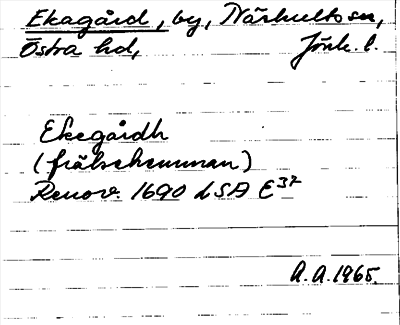 Ekagård, by, Näshults sn,
Östra hd, Jönk. l.
Ekegårdh
(frälsehemman)
Renov. 1690 LSA E³²
A.A. 1965.